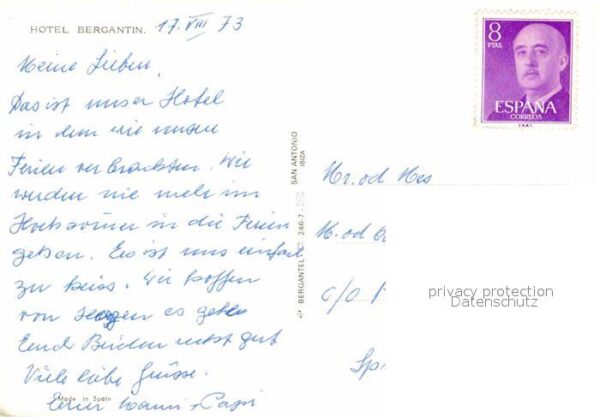 HOTEL BERGANTIN. 17. VIII 73
Meine Lieben,
Das ist unser Hotel
in dem wir unsere
Ferien verbrachten. Wir
werden nie mehr im
Hochsommer in die Ferien
gehen. Es ist uns einfach
zu heiss. Wir hoffen
von es gehe
Euch Beiden recht gut
Viele liebe Grüsse.
Made in Spain
Eure
BERGANTEL 246-7 SAN ANTONIO
IBIZA
8
PTAS
ESPAÑA
CORREOS
Mr. od Mrs
M. od
c/o
privacy protection
Datenschutz
Sp